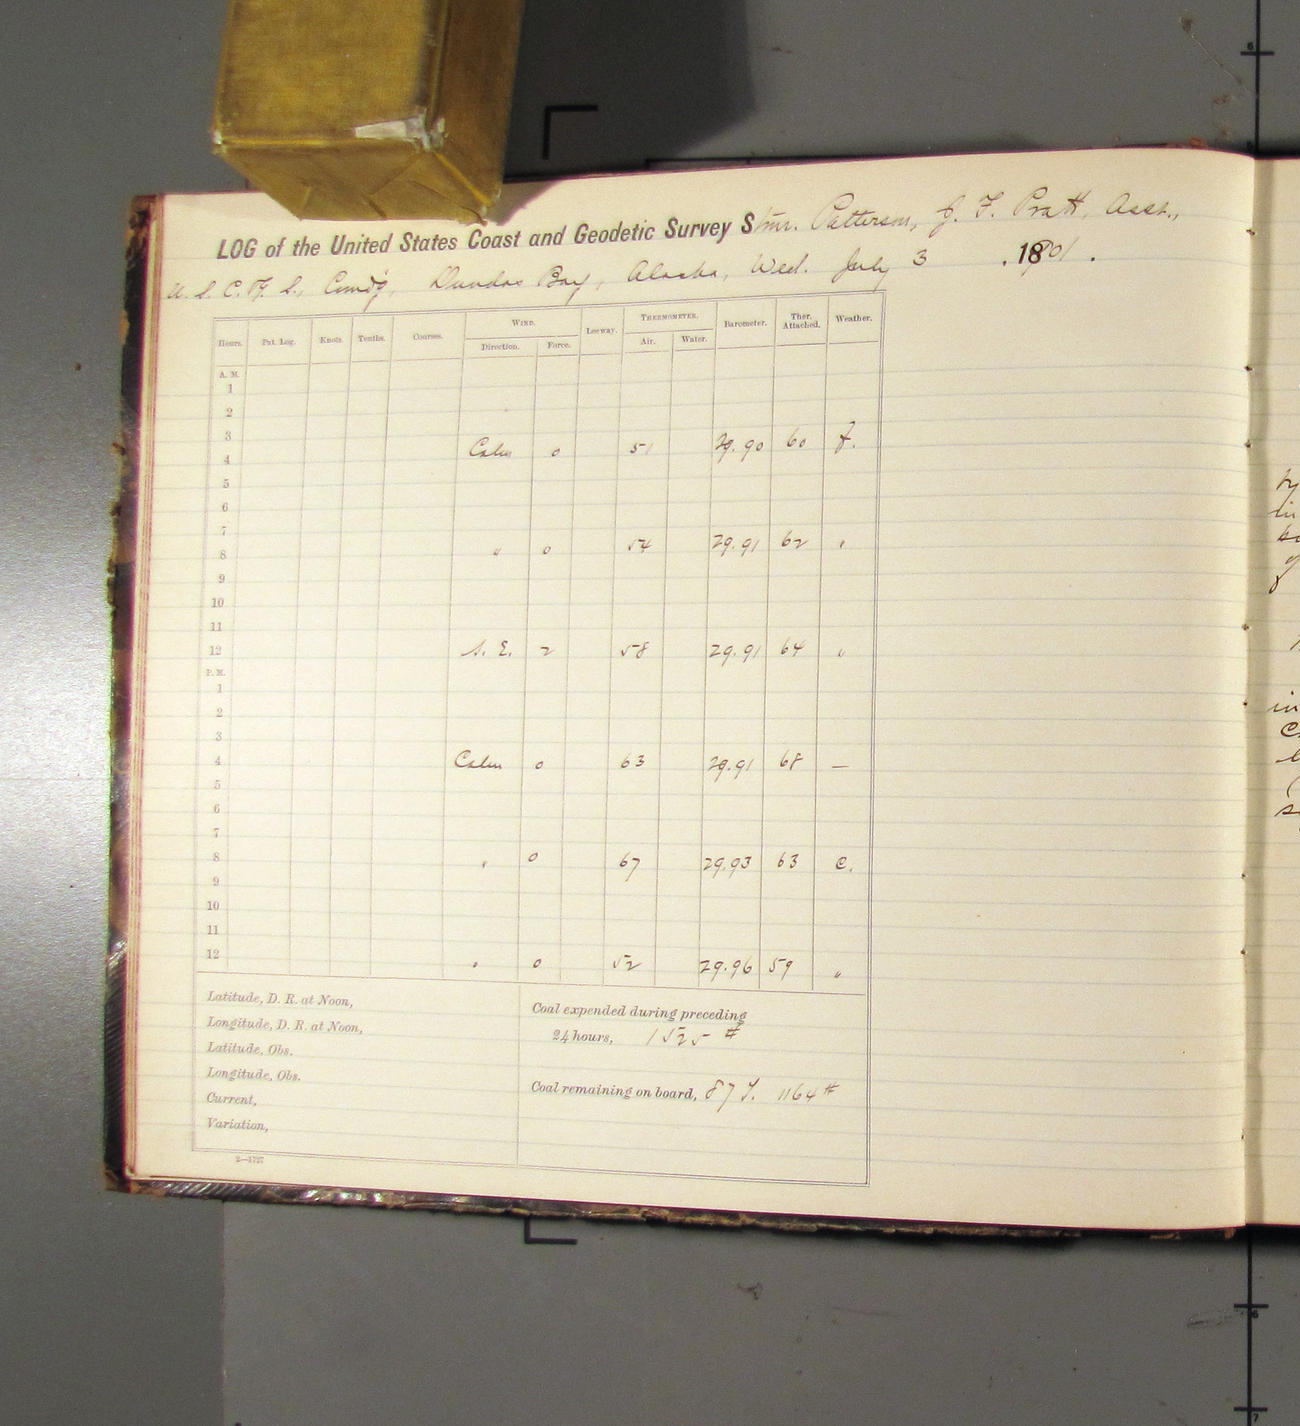 LOG of the United States Coast and Geodetic Survey Stmr. Patterson, J. F. Pratt, Asst.,
U. S. C. & G. S., Comd'g, Dundas Bay, Alaska, Wed. July 3 , 1901 .
Hours. Pat. Log. Knots. Tenths. Courses. WIND. Leeway. THERMOMETER. Barometer. Ther. Attached. Weather.
Direction. Force. Air. Water.
A. M.
1
2
3
4 Calm 0 51 29.90 60 f.
5
6
7
8 " 0 54 29.91 62 "
9
10
11
12 S. E. 2 58 29.91 64 "
P. M.
1
2
3
4 Calm 0 63 29.91 68 —
5
6
7
8 " 0 67 29.93 63 c.
9
10
11
12 " 0 52 29.96 59 "
Latitude, D. R. at Noon,
Longitude, D. R. at Noon,
Latitude, Obs.
Longitude, Obs.
Current,
Variation,
Coal expended during preceding
24 hours, 1525 #
Coal remaining on board, 87 T. 1164 #
2—1727
in
6
6
7